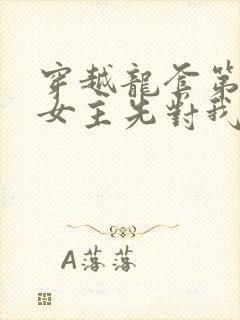 穿越龍套第
女主先對我
A落落